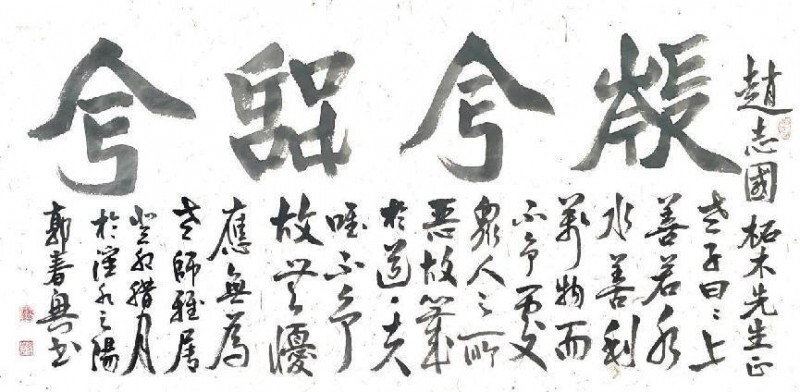 兮
兮
趙志國柘木先生正
老子曰上
善若水
水善利
萬物而
不爭處
眾人之所
惡故幾
於道夫
唯不爭
故無憂
應無為
老師雅屬
癸卯臘月
於水之陽
郭春興書